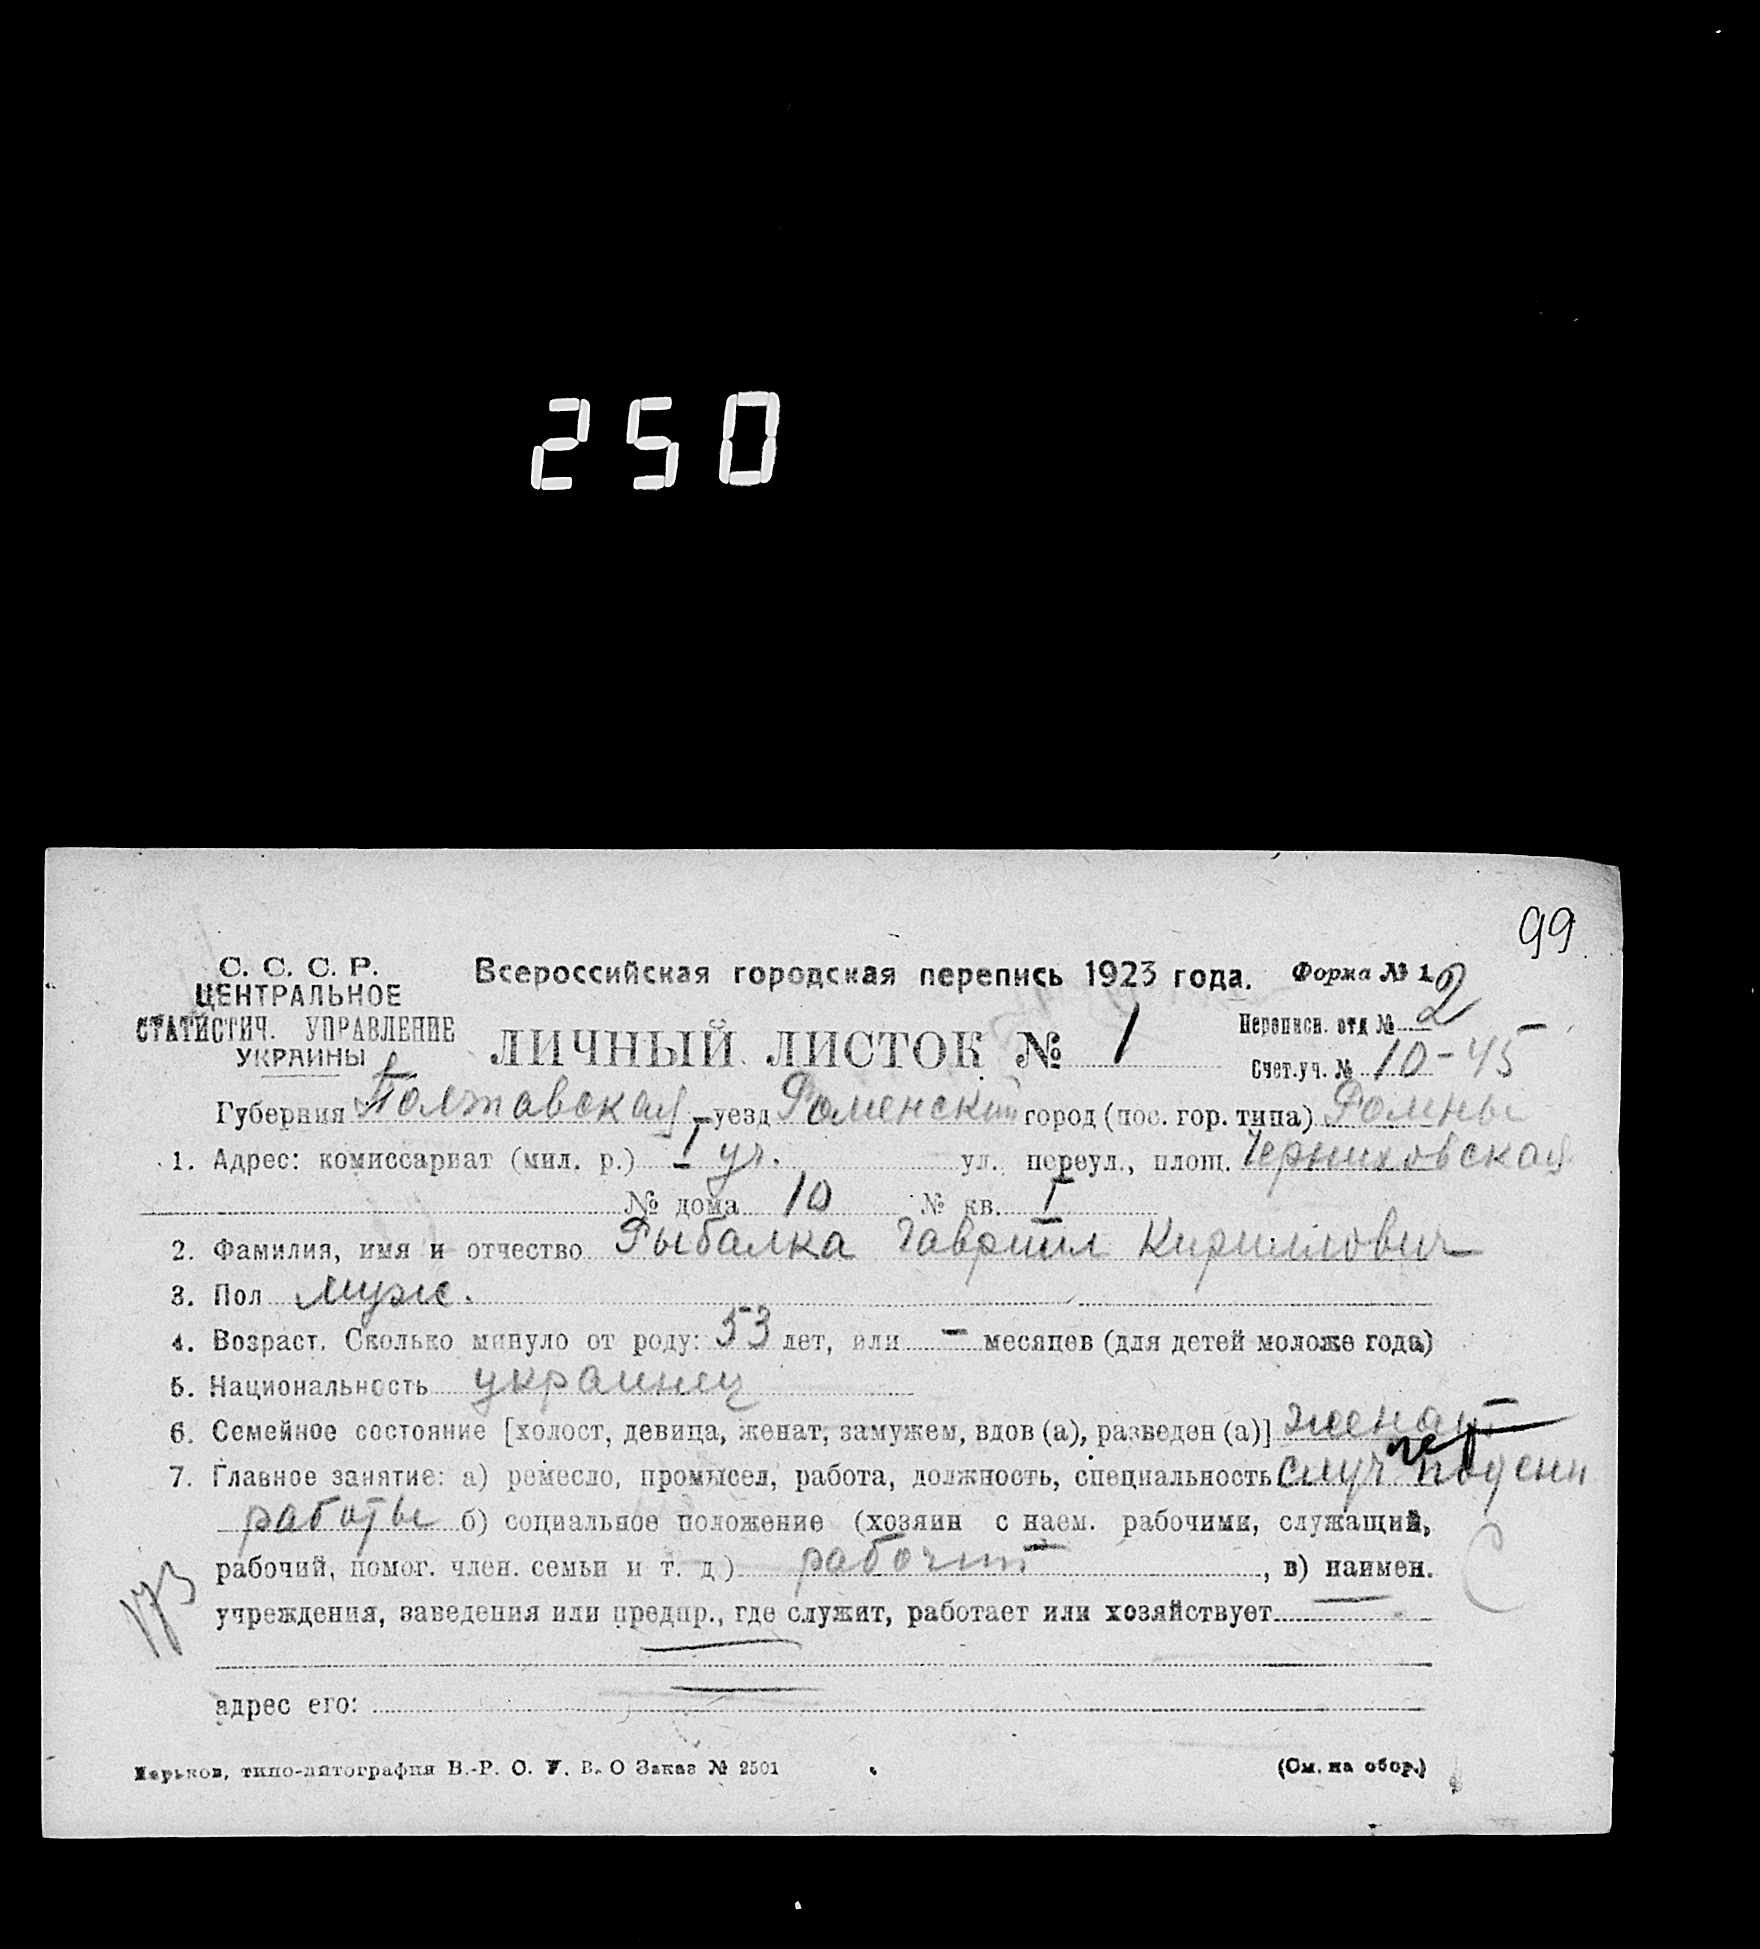 250
99
С. С. С. Р.
ЦЕНТРАЛЬНОЕ
СТАТИСТИЧ. УПРАВЛЕНИЕ
УКРАИНЫ
Всероссийская городская перепись 1923 года. Форма № 1
ЛИЧНЫЙ ЛИСТОК № 1
Переписн. отд № 2
Счет.уч. № 10-45
Губерния Полтавская уезд Роменский город (пос. гор. типа) Ромны
1. Адрес: комиссариат (мил. р.) I уч. ул. переул., площ. Черниховская
№ дома 10 № кв. I
2. Фамилия, имя и отчество Рыбалка Гавриил Кириллович
3. Пол муж.
4. Возраст. Сколько минуло от роду: 53 лет, или - месяцев (для детей моложе года)
5. Национальность украинец
6. Семейное состояние [холост, девица, женат, замужем, вдов (а), разведен (а)] женат
7. Главное занятие: а) ремесло, промысел, работа, должность, специальность случ поденн
работы б) социальное положение (хозяин с наем. рабочими, служащий,
рабочий, помог. член. семьи и т. д) рабочий, в) наимен.
учреждения, заведения или предпр., где служит, работает или хозяйствует
адрес его:
Харьков, типо-литография В.-Р. О. У. В. О Заказ № 2501 (См. на обор.)